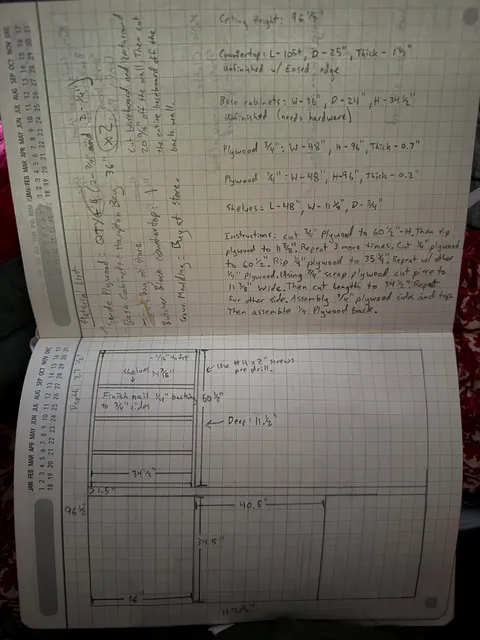 Ceiling Height: 96 1/2"
Countertop: L-10ft, D-25", Thick-1 1/2"
Unfinished w/ Eased edge
Base cabinets: W-36", D-24", H-34 1/2"
Unfinished (needs hardware)
Plywood 3/4": W-48", H-96", Thick-0.7"
Plywood 1/4": W-48", H-96", Thick-0.2"
Shelves: L-48", W-11 1/4", D-3/4"
Instructions: cut 3/4" Plywood to 60 1/2"-H. Then rip
plywood to 11 3/8". Repeat 3 more times. Cut 1/4" plywood
to 60 1/2". Rip 1/4" plywood to 35 1/4". Repeat w/ other
1/4" Plywood. Using 3/4" scrap plywood cut piece to
11 3/8" wide. Then cut length to 34 1/2". Repeat
for other side. Assembly 3/4" plywood sides and top.
Then assemble 1/4 Plywood back.
Material List
Base Cabinets: Hampton Bay 36" x2
Butcher Block countertop: 1"
Crown Moulding: Buy at store.
Cut baseboard and
off the wall. Then cut
the entire baseboard off the
back wall.
JAN FEB MAR APR MAY JUN JUL AUG SEP OCT NOV DEC
1 2 3 4 5 6 7 8 9 10 11 12 13 14 15 16 17
18 19 20 21 22 23 24 25 26 27 28 29 30 31
shelves
Finish nail 1/4" backing
to 3/4" sides
34 1/2"
60 1/2"
Use #4 x 2" screws
pre drill.
Deep: 11 1/2"
1.5"
96 1/2
40.5"
34.5"
36"
JAN FEB MAR APR MAY JUN JUL AUG SEP OCT NOV DEC
1 2 3 4 5 6 7 8 9 10 11 12 13 14 15 16 17
18 19 20 21 22 23 24 25 26 27 28 29 30 31